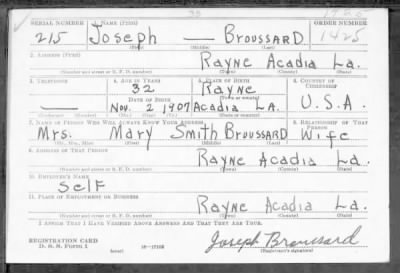 SERIAL NUMBER 1. NAME (Print) ORDER NUMBER
215 Joseph — Broussard 1425
(First) (Middle) (Last)
2. ADDRESS (Print)
Rayne Acadia La.
(Number and street or R. F. D. number) (Town) (County) (State)
3. TELEPHONE 4. AGE IN YEARS 5. PLACE OF BIRTH 6. COUNTRY OF CITIZENSHIP
32 Rayne
(Town or county)
DATE OF BIRTH
— Nov. 2 1907 Acadia La. U.S.A.
(Exchange) (Number) (Mo.) (Day) (Yr.) (State or country)
7. NAME OF PERSON WHO WILL ALWAYS KNOW YOUR ADDRESS 8. RELATIONSHIP OF THAT PERSON
Mrs. Mary Smith Broussard Wife
(Mr., Mrs., Miss) (First) (Middle) (Last)
9. ADDRESS OF THAT PERSON
Rayne Acadia La.
(Number and street or R. F. D. number) (Town) (County) (State)
10. EMPLOYER'S NAME
Self
11. PLACE OF EMPLOYMENT OR BUSINESS
Rayne Acadia La.
(Number and street or R. F. D. number) (Town) (County) (State)
I AFFIRM THAT I HAVE VERIFIED ABOVE ANSWERS AND THAT THEY ARE TRUE.
REGISTRATION CARD
D. S. S. FORM 1 (over) 16—17105 Joseph Broussard
(Registrant's signature)